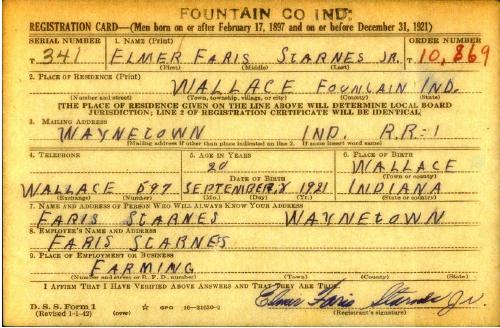 FOUNTAIN CO IND.
REGISTRATION CARD—(Men born on or after February 17, 1897 and on or before December 31, 1921)
SERIAL NUMBER 1. NAME (Print) ORDER NUMBER
T. 341 ELMER FARIS STARNES JR. T. 10,869
(First) (Middle) (Last)
2. PLACE OF RESIDENCE (Print)
WALLACE FOUNTAIN IND.
(Number and street) (Town, township, village, or city) (County) (State)
[THE PLACE OF RESIDENCE GIVEN ON THE LINE ABOVE WILL DETERMINE LOCAL BOARD
JURISDICTION; LINE 2 OF REGISTRATION CERTIFICATE WILL BE IDENTICAL]
3. MAILING ADDRESS
WAYNETOWN IND. R.R-1
[Mailing address if other than place indicated on line 2. If same insert word same]
4. TELEPHONE 5. AGE IN YEARS 6. PLACE OF BIRTH
20 WALLACE
DATE OF BIRTH (Town or county)
WALLACE 597 SEPTEMBER 1921 INDIANA
(Exchange) (Number) (Mo.) (Day) (Yr.) (State or country)
7. NAME AND ADDRESS OF PERSON WHO WILL ALWAYS KNOW YOUR ADDRESS
FARIS STARNES WAYNETOWN
8. EMPLOYER'S NAME AND ADDRESS
FARIS STARNES
9. PLACE OF EMPLOYMENT OR BUSINESS
FARMING
(Number and street or R. F. D. number) (Town) (County) (State)
I AFFIRM THAT I HAVE VERIFIED ABOVE ANSWERS AND THAT THEY ARE TRUE.
D. S. S. Form 1
(Revised 1-1-42) (over) GPO 16-21630-2 Elmer Faris Starnes Jr.
(Registrant's signature)